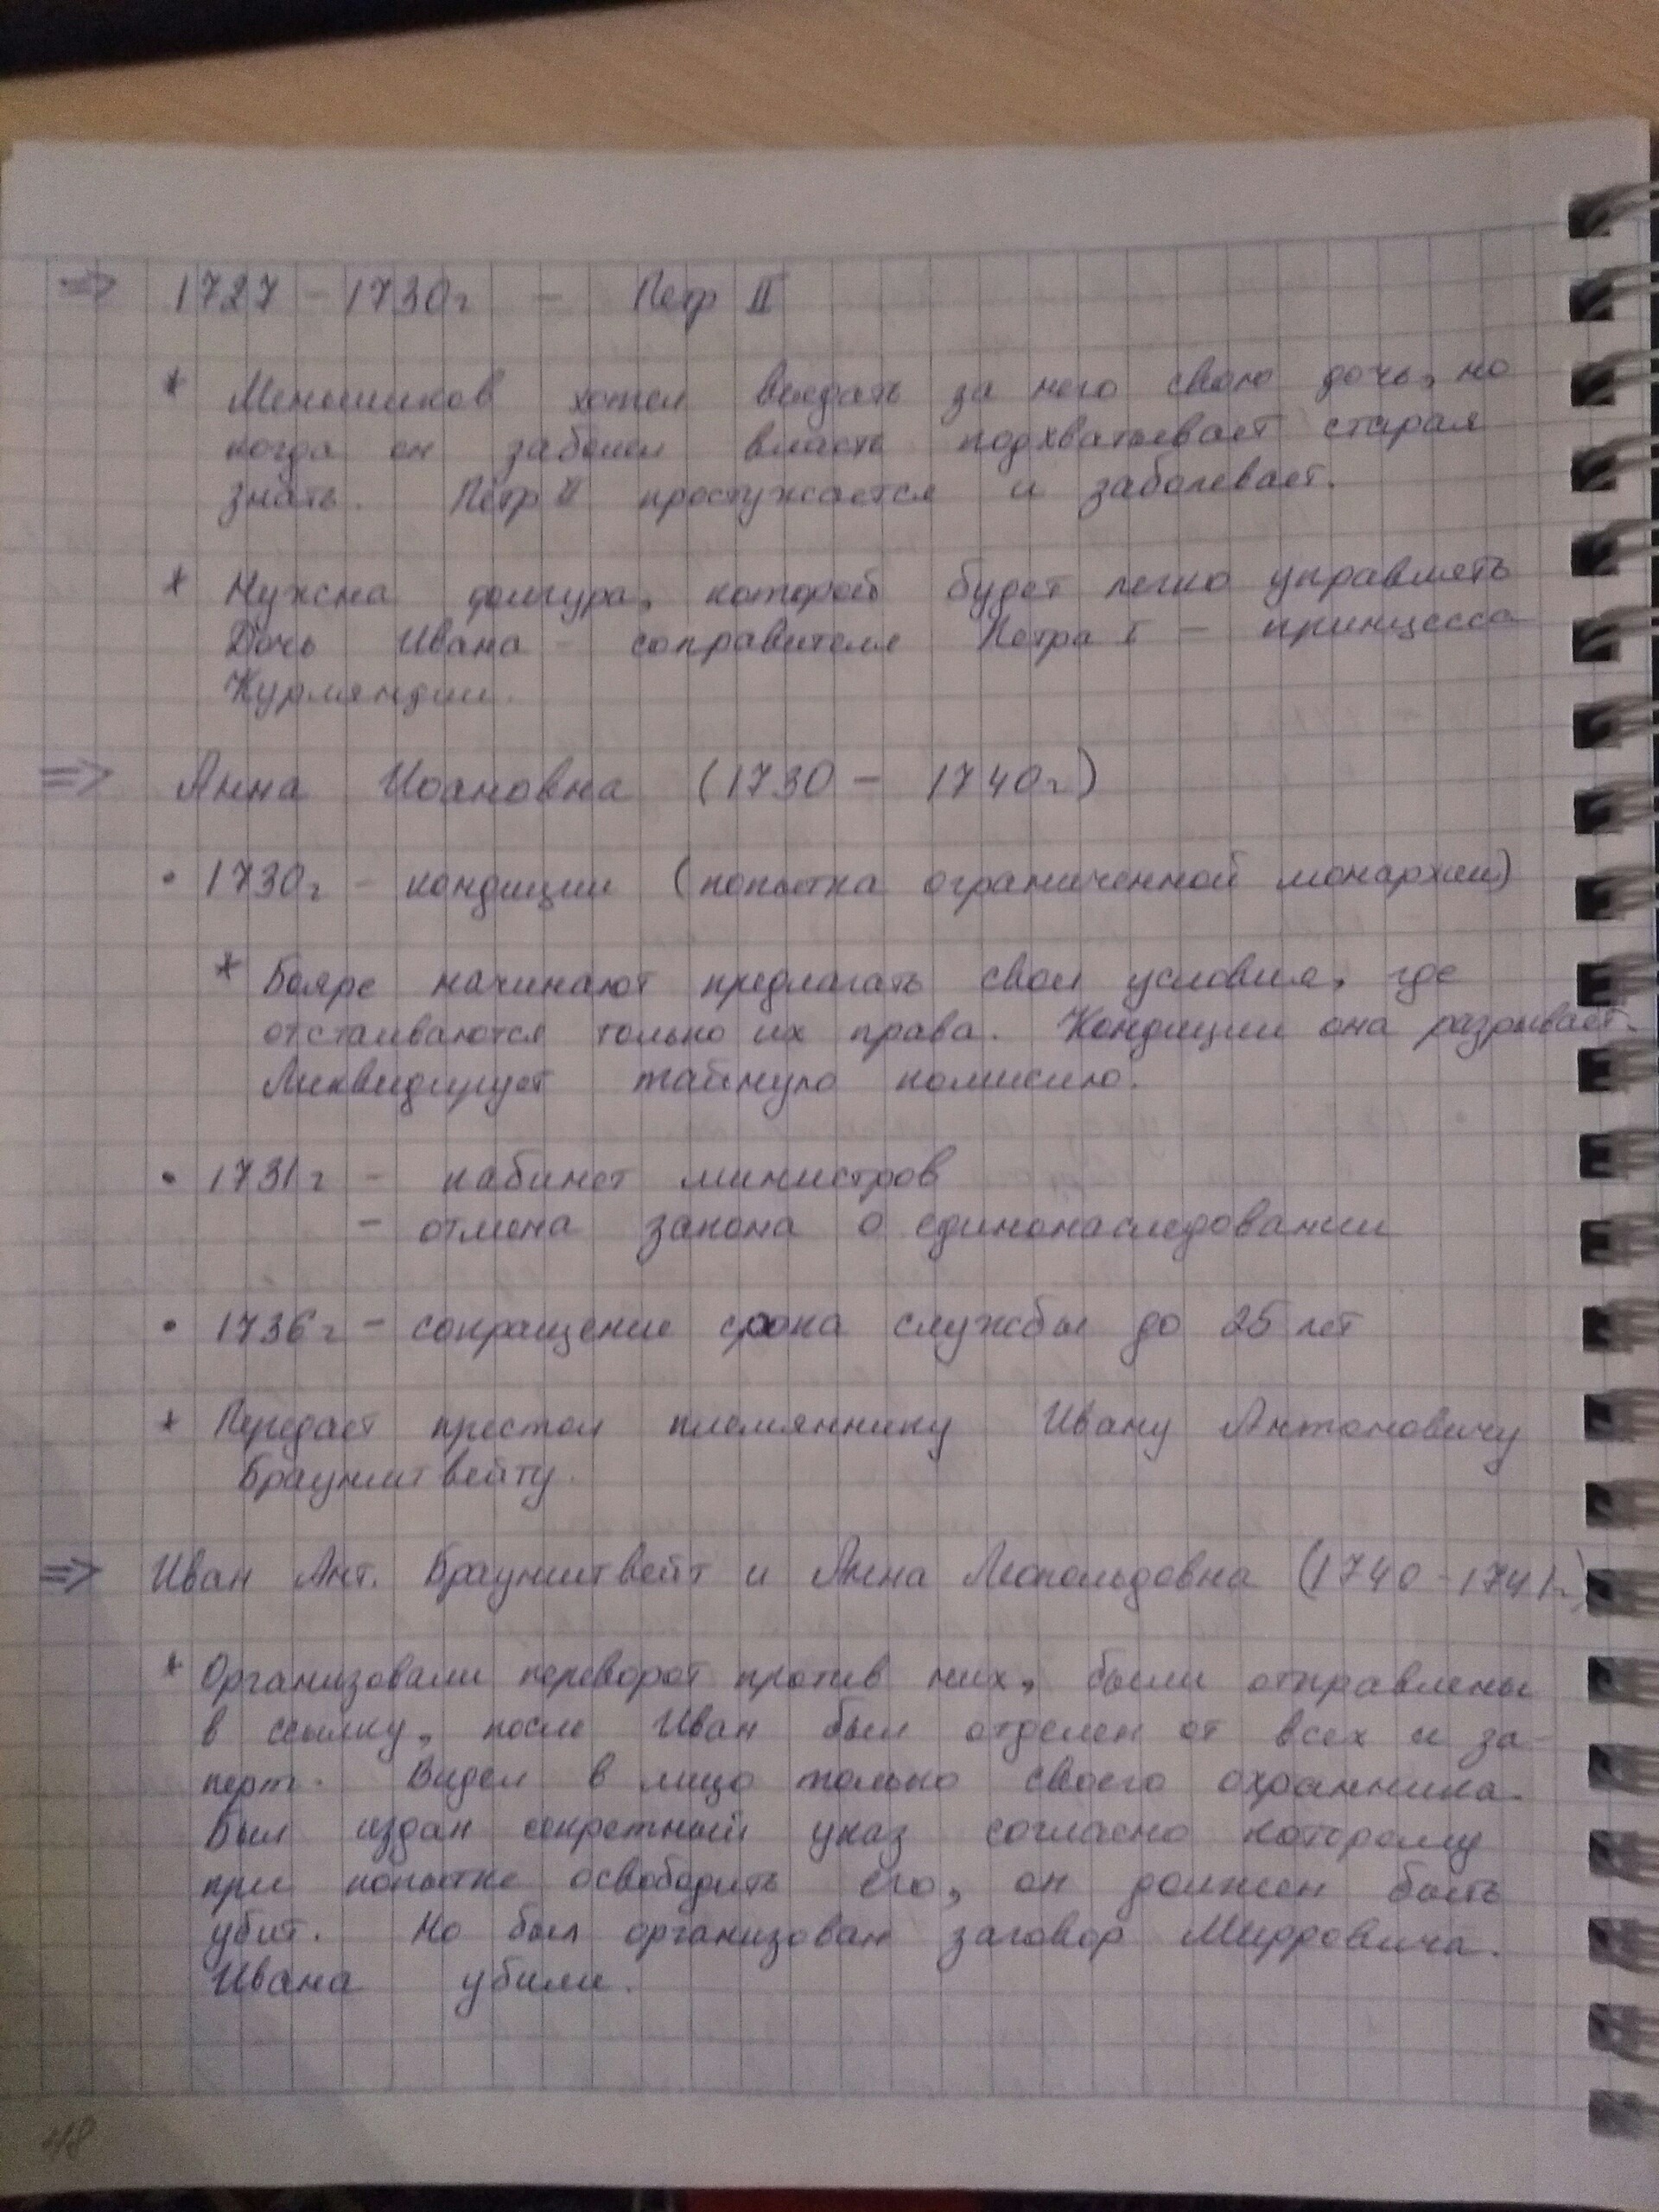 ⇒ 1727 – 1730г – Петр II
* Меньшиков хотел выдать за него свою дочь, но
когда он заболел власть подхватывает старая
знать. Пётр II простужается и заболевает.
* Нужна фигура, которой будет легко управлять
Дочь Ивана – соправителя Петра I – принцесса
Курляндии.
⇒ Анна Иоановна (1730 – 1740г)
• 1730г – кондиции (попытка ограниченной монархии)
* Бояре начинают предлагать свои условия, где
отстаиваются только их права. Кондиции она разрывает.
Ликвидирует тайную комисию.
• 1731г – кабинет министров
– отмена закона о единонаследовании
• 1736г – сокращение срока службы до 25 лет
* Передает престол племяннику Ивану Антоновичу
Брауншвейту.
⇒ Иван Ант. Брауншвейт и Анна Леопольдовна (1740 – 1741г)
* Организовали переворот против них, были отправлены
в ссылку, после Иван был отделен от всех и за
перт. Видел в лицо только своего охранника.
Был издан секретный указ согласно которому
при попытке освободить его, он должен быть
убит. Но был организован заговор Мирровича.
Ивана убили.
48